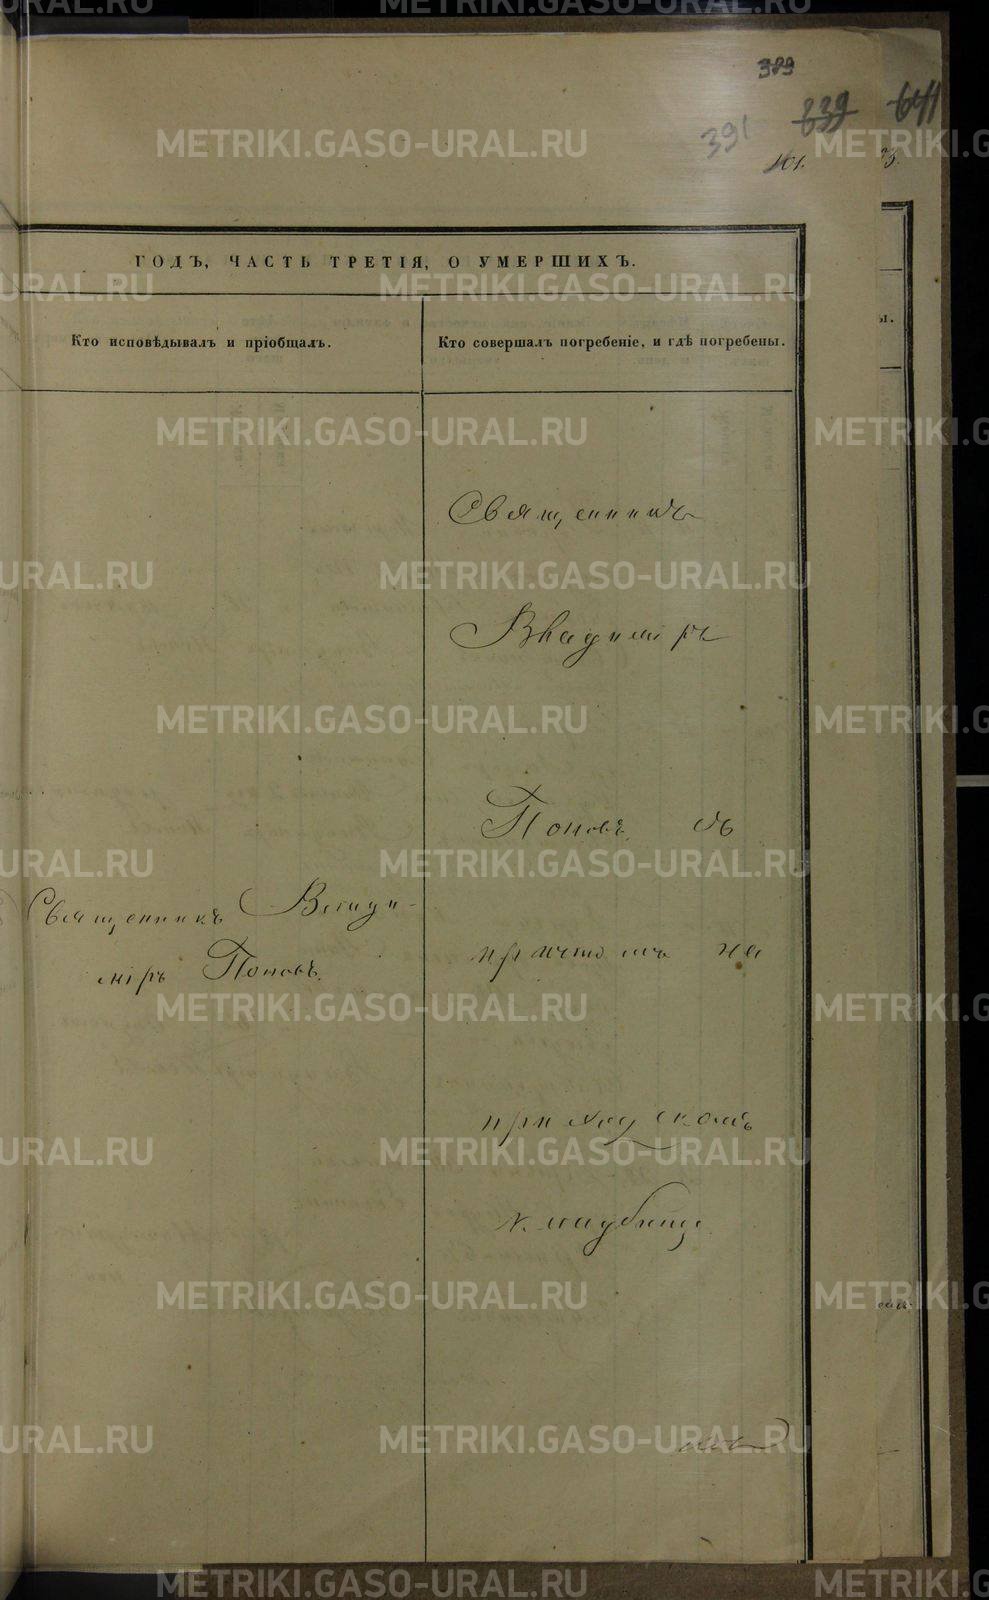 389
391 839 641
101.
ГОДЪ, ЧАСТЬ ТРЕТІЯ, О УМЕРШИХЪ.
Кто исповѣдывалъ и пріобщалъ.
Кто совершалъ погребеніе, и гдѣ погребены.
Священникъ Влади-
міръ Поповъ.
Священникъ
Владиміръ
Поповъ съ
причтомъ на
приходскомъ
кладбищѣ
METRIKI.GASO-URAL.RU